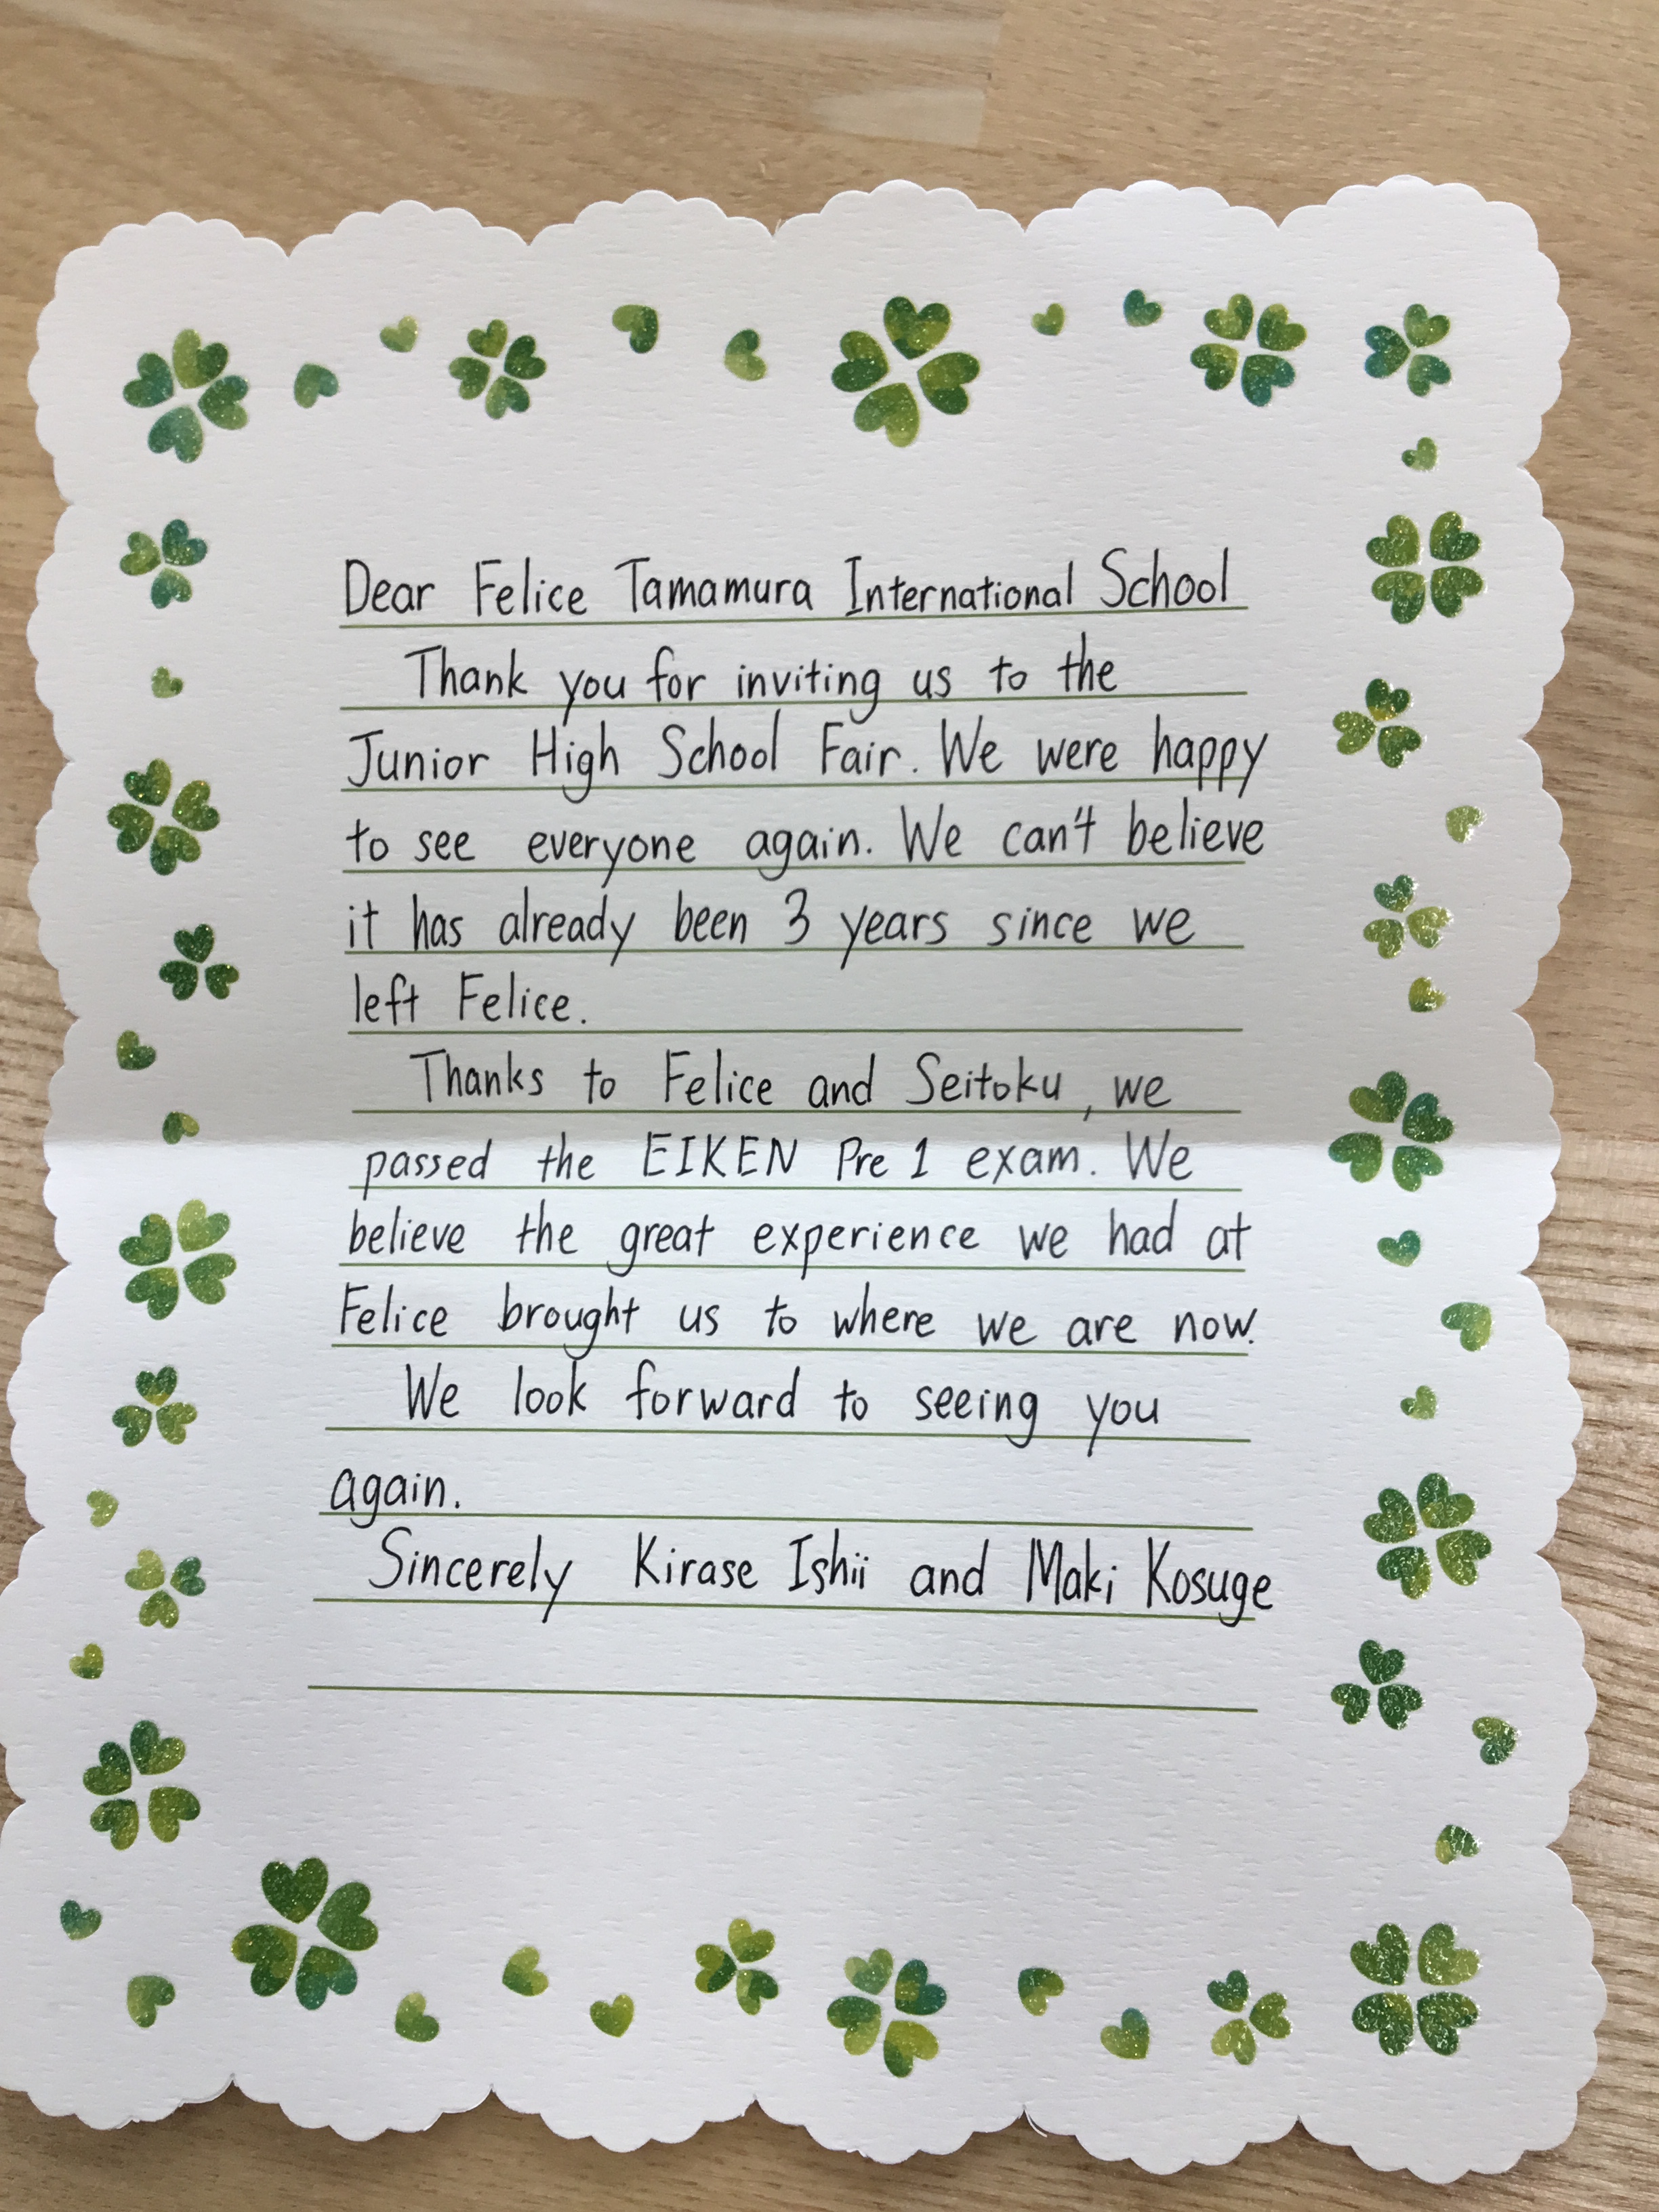 Dear Felice Tamamura International School
Thank you for inviting us to the
Junior High School Fair. We were happy
to see everyone again. We can't believe
it has already been 3 years since we
left Felice.
Thanks to Felice and Seitoku, we
passed the EIKEN Pre 1 exam. We
believe the great experience we had at
Felice brought us to where we are now.
We look forward to seeing you
again.
Sincerely Kirase Ishii and Maki Kosuge